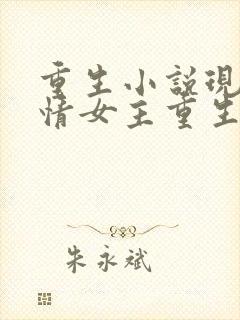 重生小説現
情女主重生
朱永斌